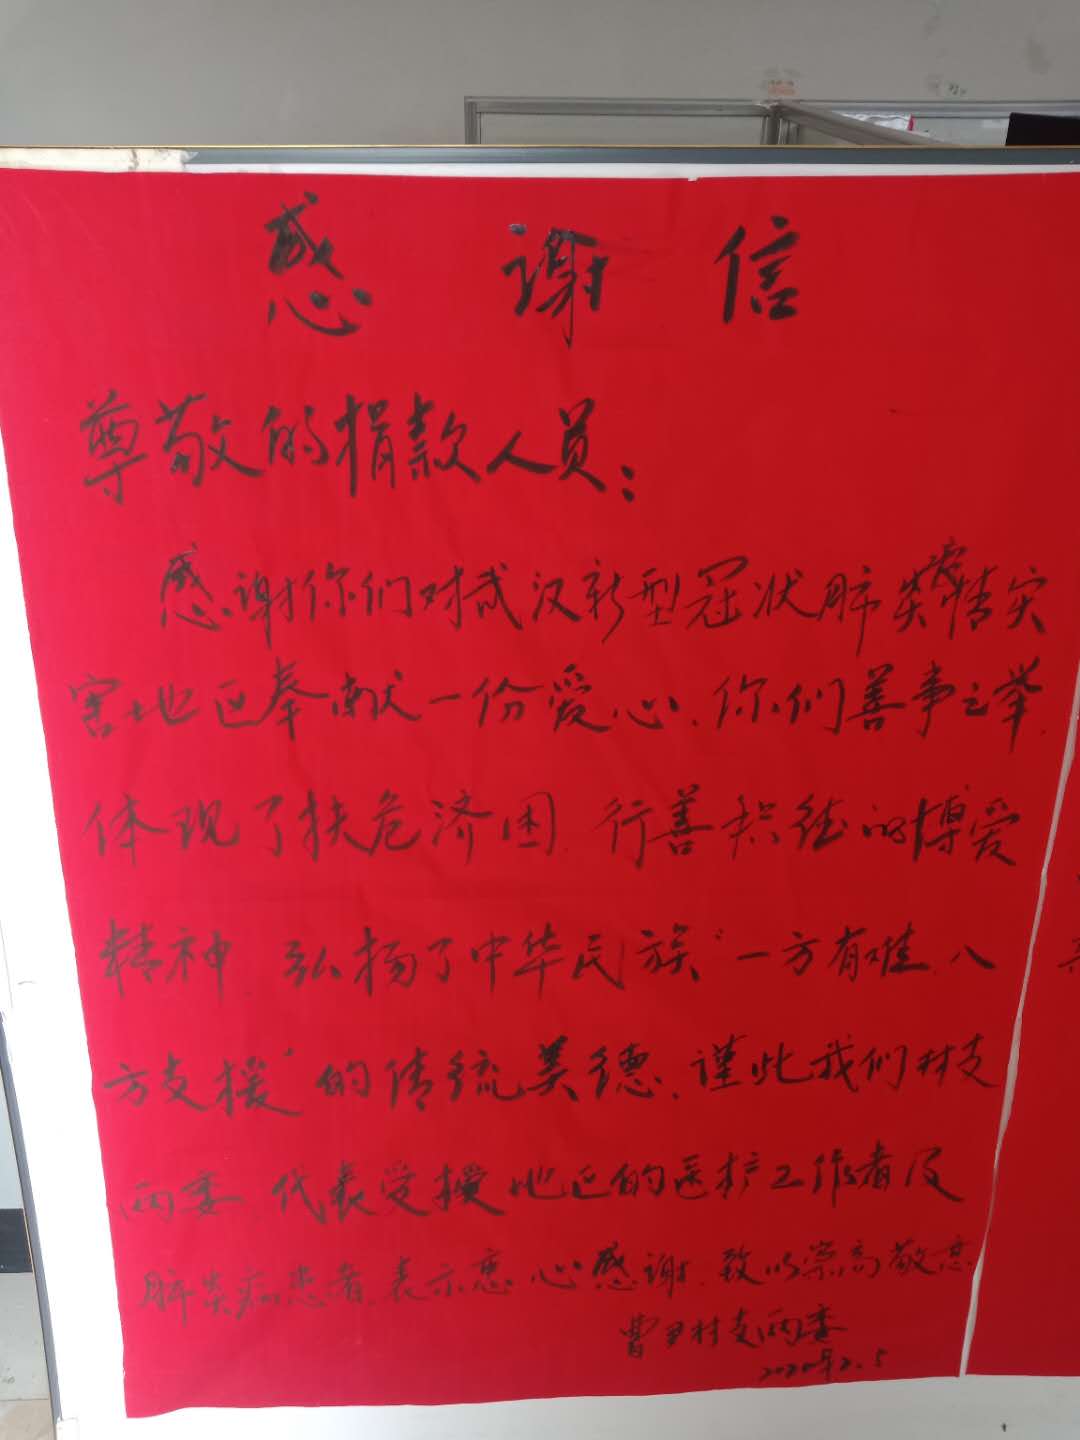 感谢信
尊敬的捐款人员：
感谢你们对武汉新型冠状肺炎疫情灾
害地区奉献一份爱心、你们善事之举、
体现了扶危济困、行善积德的博爱
精神、弘扬了中华民族“一方有难、八
方支援”的传统美德、谨此我们村支
两委、代表受援地区的医护工作者及
肺炎病患者、表示衷心感谢、致以崇高敬意
曹 村支两委
2020年2.5